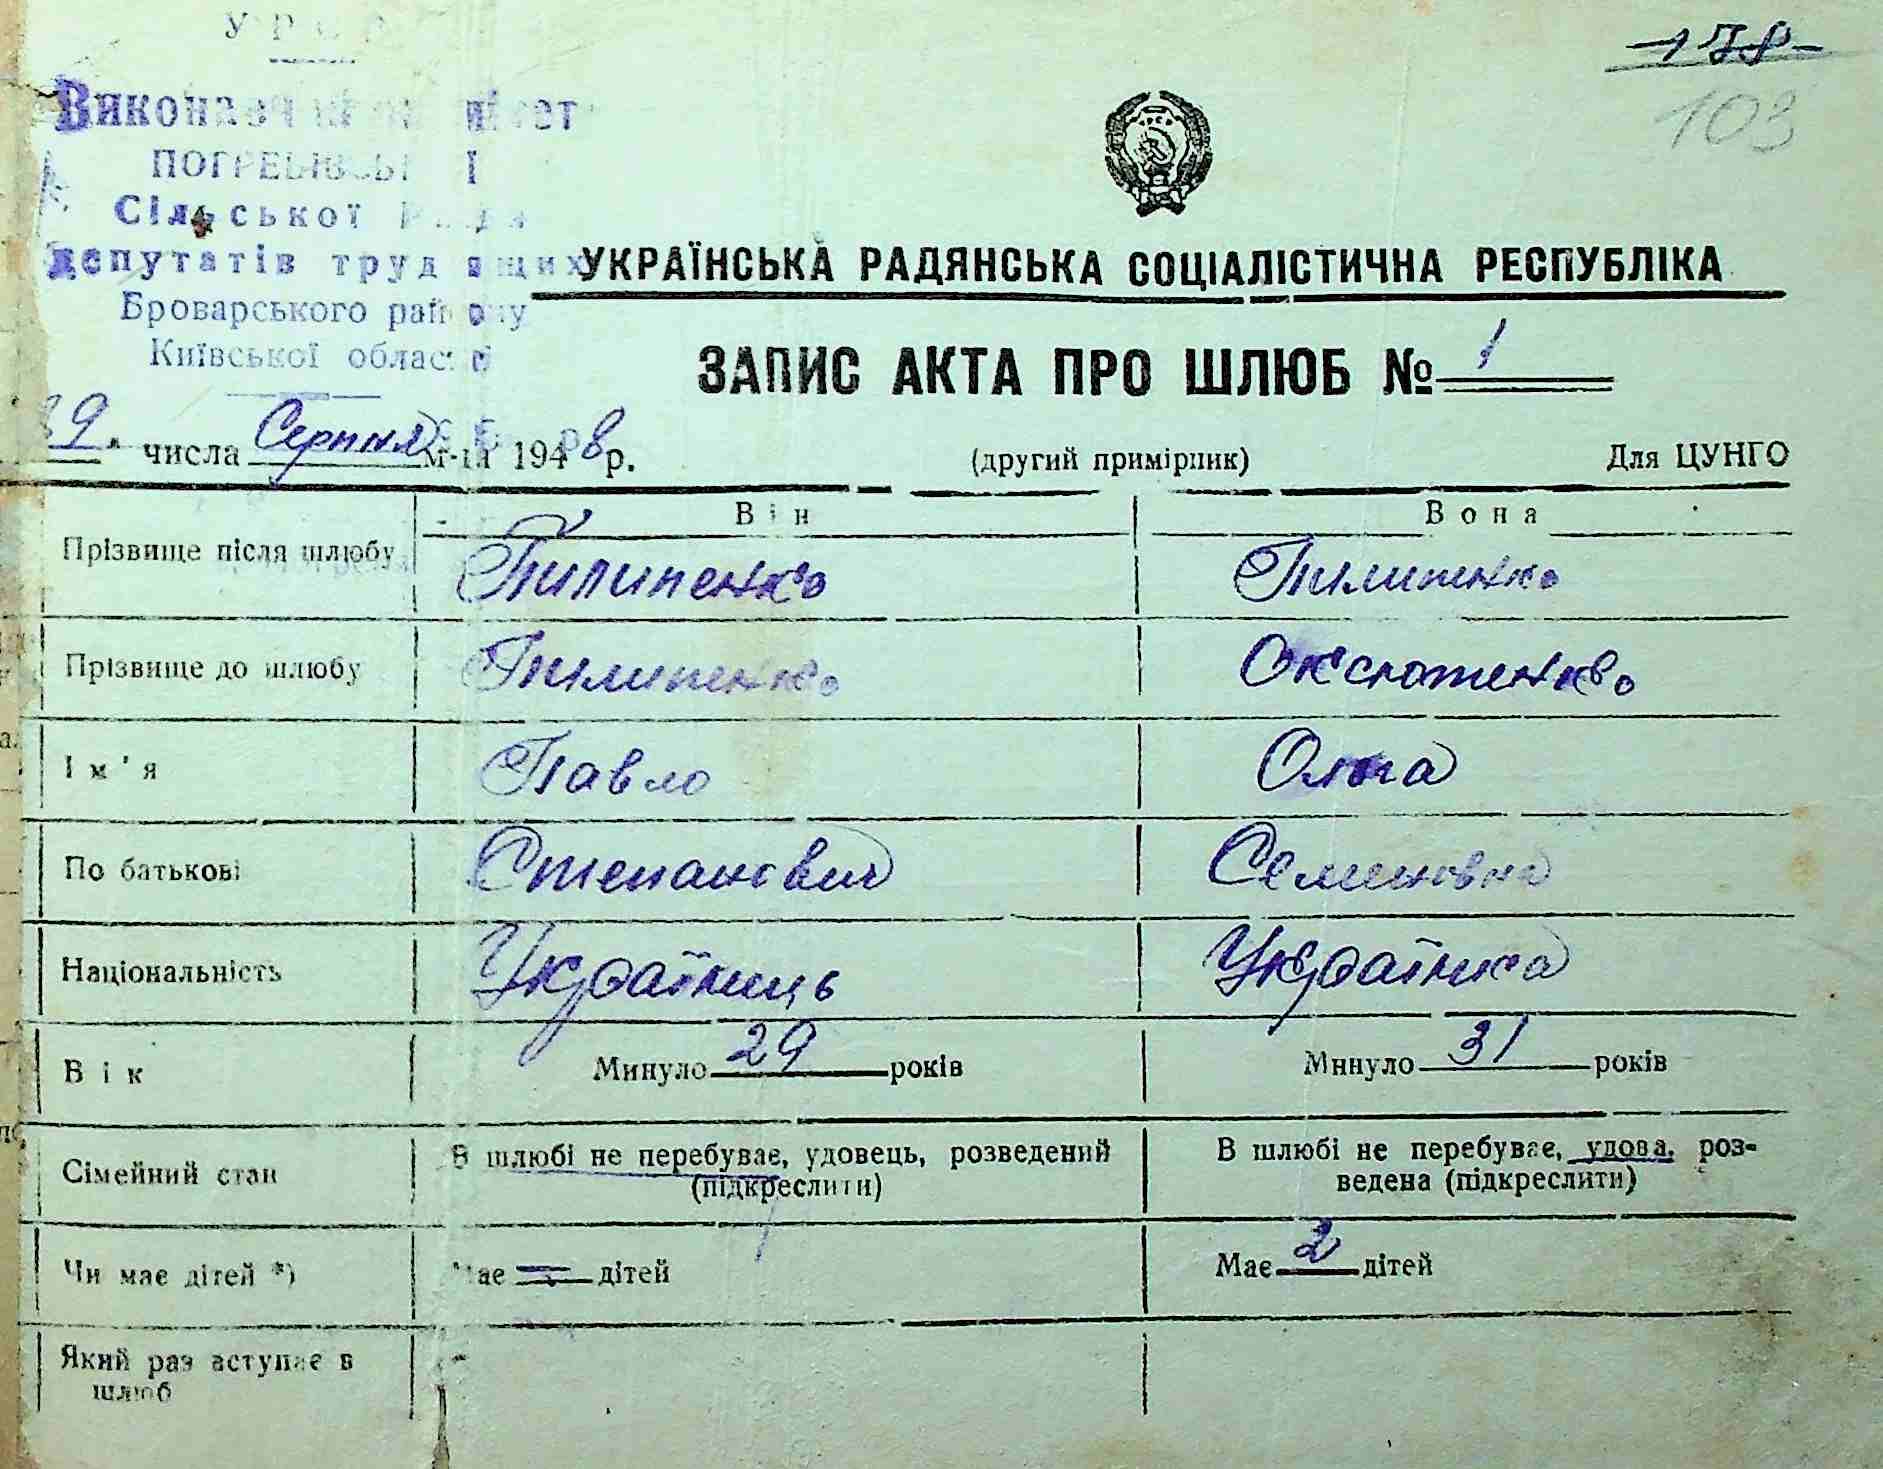 УРСР
-178-
103
Виконавчий комітет
ПОГРЕБІВСЬКОЇ
Сільської Ради
депутатів трудящих
Броварського району
Київської області
УКРАЇНСЬКА РАДЯНСЬКА СОЦІАЛІСТИЧНА РЕСПУБЛІКА
ЗАПИС АКТА ПРО ШЛЮБ № 1
числа Серпня м-ця 1948 р. (другий примірник) Для ЦУНГО
Він Вона
Прізвище після шлюбу Пилипенко Пилипенко
Прізвище до шлюбу Пилипенко
Ім'я Павло Ольга
По батькові Степанович Семеновна
Національність Українець Українка
Вік Минуло 29 років Минуло 31 років
Сімейний стан В шлюбі не перебуває, удовець, розведений В шлюбі не перебуває, удова, роз-
(підкреслити) ведена (підкреслити)
Чи має дітей *) Має — дітей Має 2 дітей
Який раз вступає в
шлюб